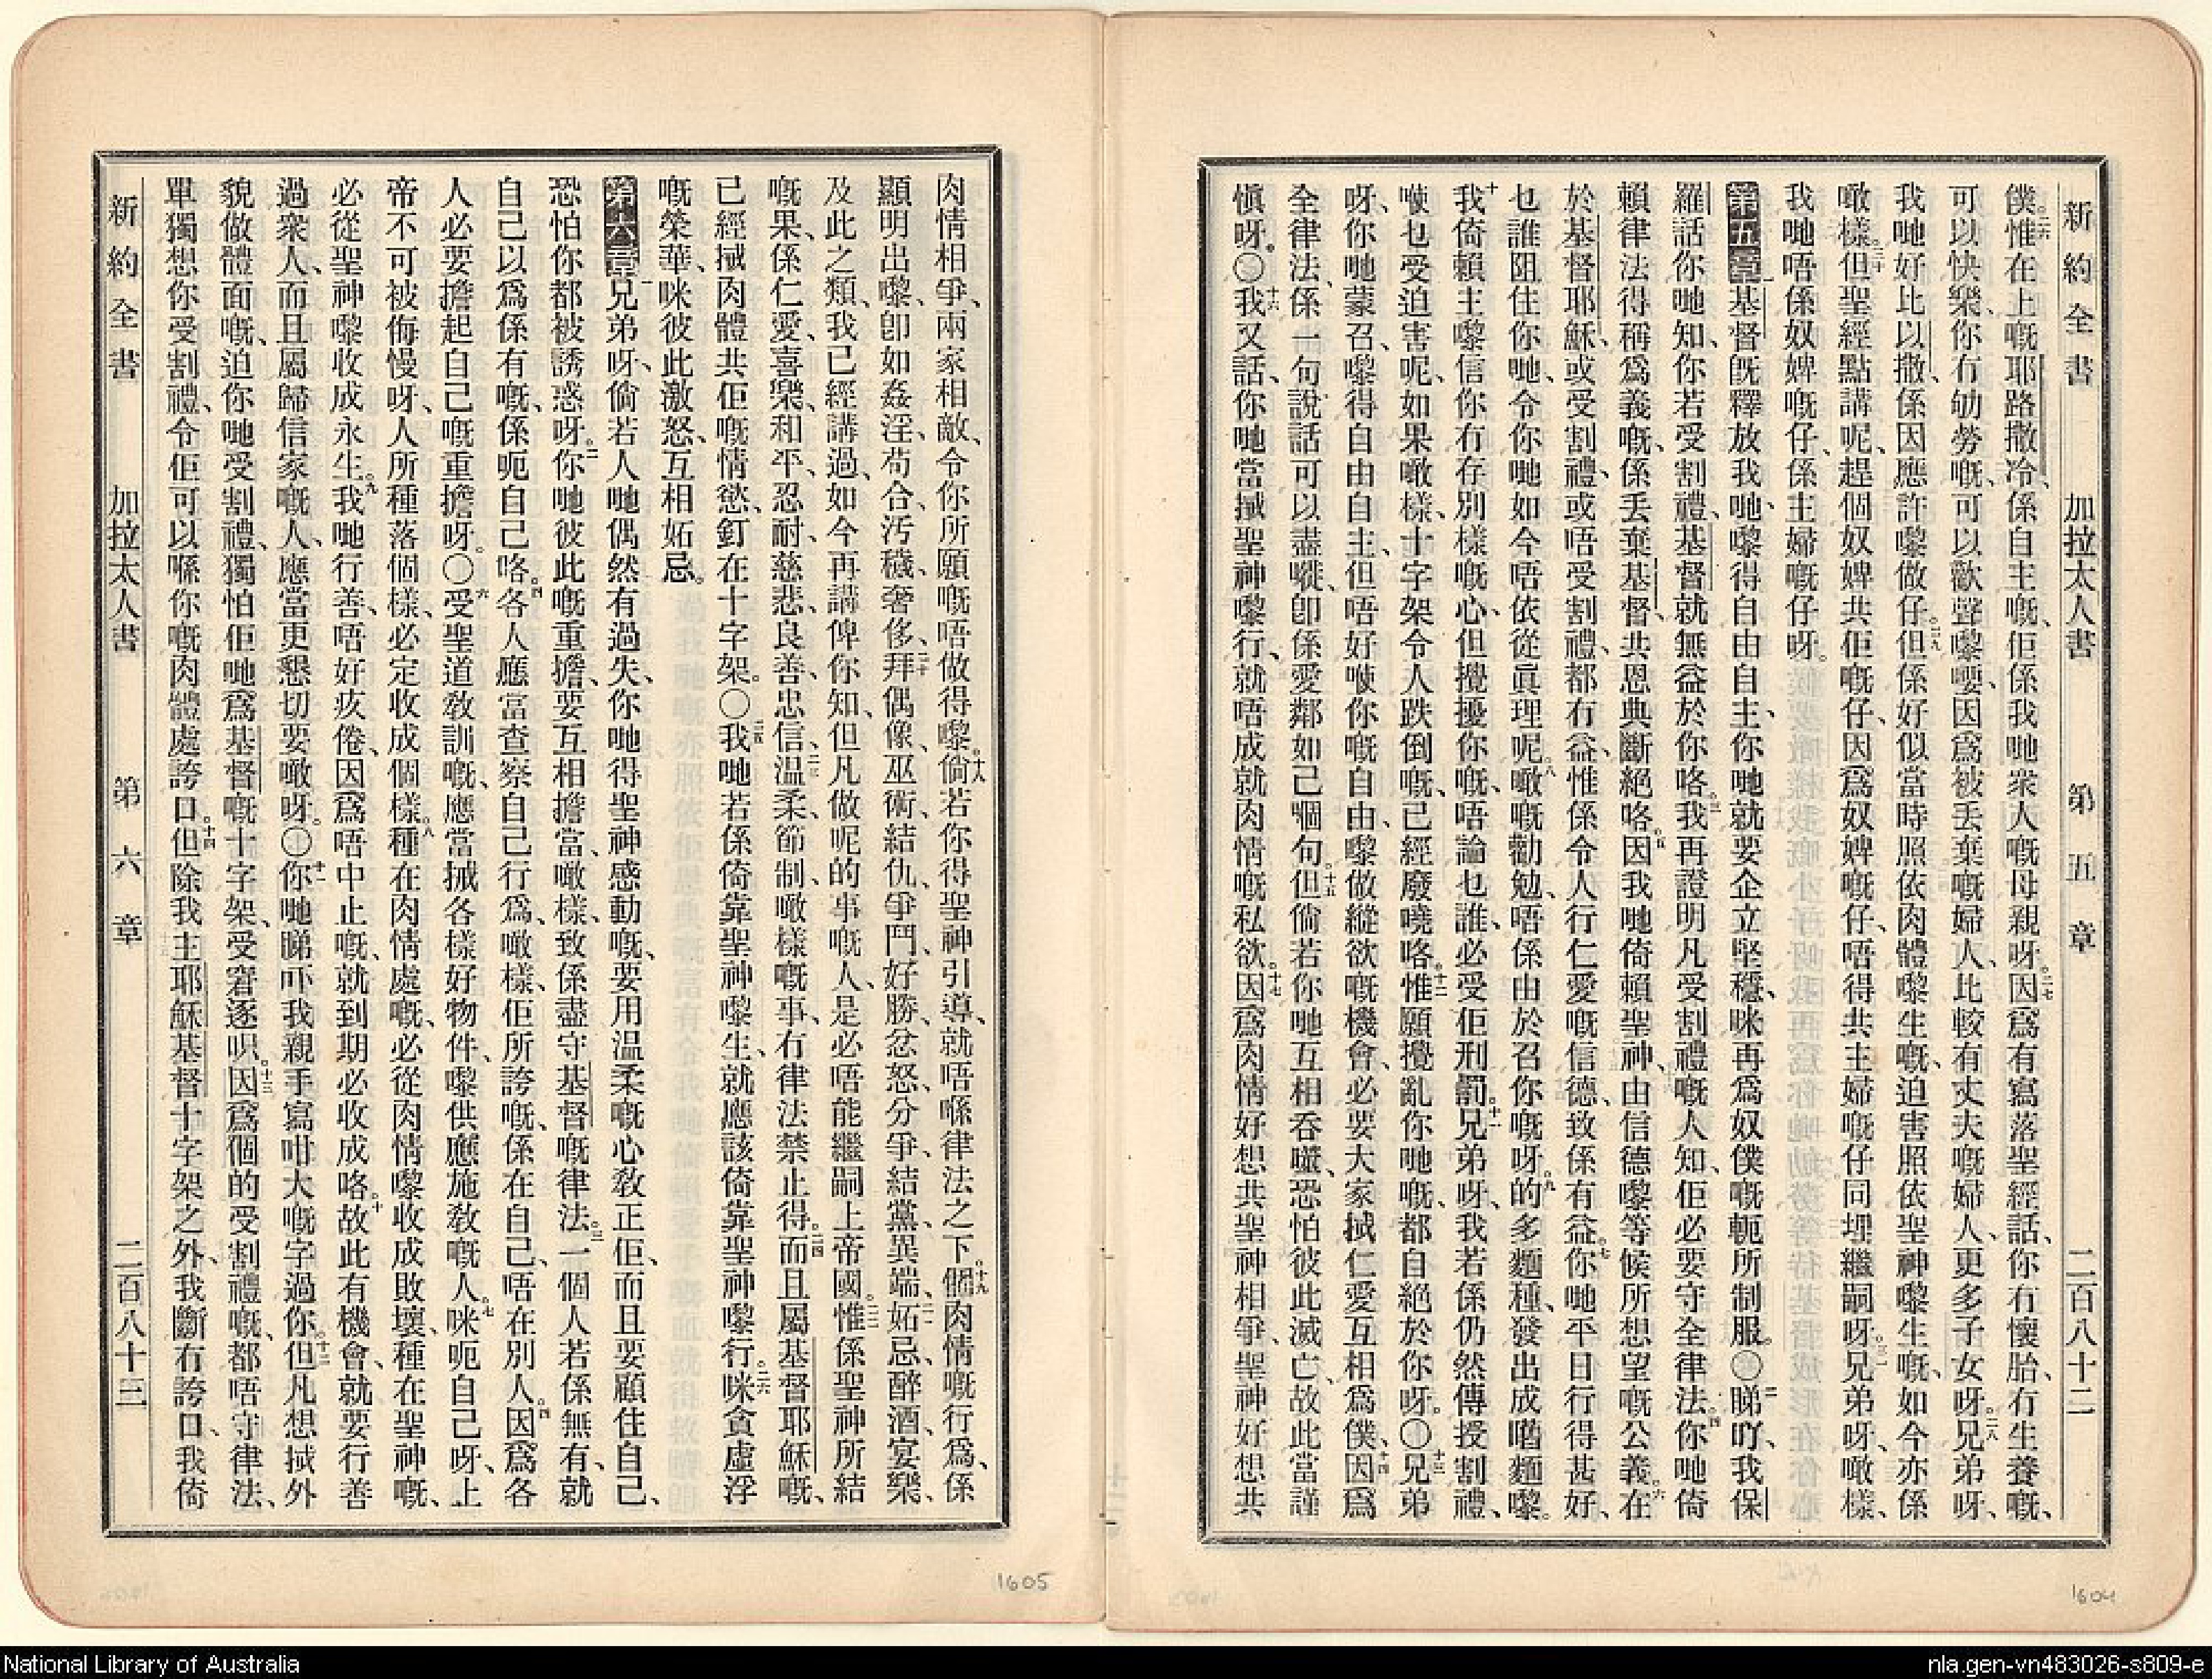 新約全書 加拉太人書 第五章 二百八十二
僕惟在上嘅耶路撒冷、係自主嘅、佢係我哋衆人嘅母親呀。因爲有寫落聖經話、你冇懷胎冇生養嘅、
可以快樂、你冇劬勞嘅、可以歡聲嚟嘤、因爲被丟棄嘅婦人、比較有丈夫嘅婦人、更多子女呀。兄弟呀、
我哋好比以撒、係因應許嚟做仔。但係好似當時照依肉體嚟生嘅、迫害照依聖神嚟生嘅、如今亦係
噉樣。但聖經點講呢、趕個奴婢共佢嘅仔、因爲奴婢嘅仔、唔得共主婦嘅仔同埋繼嗣呀。兄弟呀、噉樣、
我哋唔係奴婢嘅仔、係主婦嘅仔呀。
第五章 基督旣釋放我哋、嚟得自由自主、你哋就要企立堅穩、咪再爲奴僕嘅軛所制服。〇睇吖、我保
羅話你哋知、你若受割禮、基督就無益於你咯。我再證明凡受割禮嘅人知、佢必要守全律法。你哋倚
賴律法得稱爲義嘅、係丟棄基督、共恩典斷絕咯。因我哋倚賴聖神、由信德嚟等候所想望嘅公義。在
於基督耶穌、或受割禮、或唔受割禮、都冇益、惟係令人行仁愛嘅信德、致係有益。你哋平日行得甚好、
乜誰阻住你哋、令你哋如今唔依從眞理呢。噉嘅勸勉、唔係由於召你嘅呀。的多麵種、發出成嚿麵嚟。
我倚賴主嚟信你冇存別樣嘅心、但攪擾你嘅、唔論乜誰、必受佢刑罰。兄弟呀、我若係仍然傳授割禮、
唊乜受迫害呢、如果噉樣、十字架令人跌倒嘅、已經廢嘵咯。惟願攪亂你哋嘅、都自絕於你呀。〇兄弟
呀、你哋蒙召、嚟得自由自主、但唔好唊你嘅自由、嚟做縱欲嘅機會、必要大家揻仁愛互相爲僕、因爲
全律法、係一句說話可以盡嘥、卽係愛鄰如己嗰句。但倘若你哋互相吞嚥、恐怕彼此滅亡、故此當謹
愼呀。〇我又話、你哋當揻聖神嚟行、就唔成就肉情嘅私欲。因爲肉情好想共聖神相爭、聖神好想共
肉情相爭、兩家相敵、令你所願嘅唔做得嚟。倘若你得聖神引導、就唔喺律法之下。個肉情嘅行爲、係
顯明出嚟、卽如姦淫、苟合、汚穢、奢侈、拜偶像、巫術、結仇、爭鬥、好勝、忿怒、分爭、結黨、異端、妬忌、醉酒、宴樂、
及此之類、我已經講過、如今再講俾你知、但凡做呢的事嘅人、是必唔能繼嗣上帝國。惟係聖神所結
嘅果、係仁愛、喜樂、和平、忍耐、慈悲、良善、忠信、温柔、節制、噉樣嘅事、冇律法禁止得。而且屬基督耶穌嘅、
已經揻肉體共佢嘅情慾、釘在十字架。〇我哋若係倚靠聖神嚟生、就應該倚靠聖神嚟行。咪貪虛浮
嘅榮華、咪彼此激怒、互相妬忌。
第六章 兄弟呀、倘若人哋偶然有過失、你哋得聖神感動嘅、要用温柔嘅心敎正佢、而且要顧住自己、
恐怕你都被誘惑呀。你哋彼此嘅重擔、要互相擔當、噉樣、致係盡守基督嘅律法。一個人若係無有、就
自己以爲係有嘅、係呃自己咯。各人應當查察自己行爲、噉樣、佢所誇嘅、係在自己、唔在別人。因爲各
人必要擔起自己嘅重擔呀。〇受聖道敎訓嘅、應當揻各樣好物件、嚟供應施敎嘅人。咪呃自己呀、上
帝不可被侮慢呀、人所種落個樣、必定收成個樣。種在肉情處嘅、必從肉情嚟收成敗壞、種在聖神嘅、
必從聖神嚟收成永生。我哋行善、唔好疚倦、因爲唔中止嘅、就到期必收成咯。故此有機會、就要行善
過衆人、而且屬歸信家嘅人、應當更懇切要噉呀。〇你哋睇吓我親手寫咁大嘅字過你。但凡想揻外
貌做體面嘅、迫你哋受割禮、獨怕佢哋爲基督嘅十字架、受窘逐呮。因爲個的受割禮嘅、都唔守律法、
單獨想你受割禮、令佢可以喺你嘅肉體處誇口。但除我主耶穌基督十字架之外、我斷冇誇口、我倚
新約全書 加拉太人書 第六章 二百八十三
1605
1604
National Library of Australia
nla.gen-vn483026-s809-e